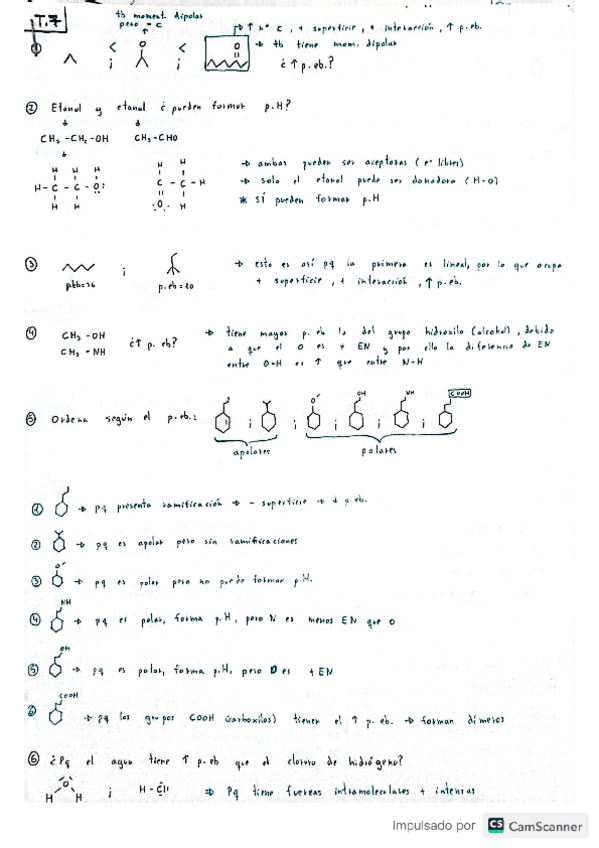 T.7
tb moment. dipolar
pero - C
↑ nº C, + superficie, + interacción, ↑ p.eb.
→ tb tiene mom. dipolar
① < ; < ; O O
¿↑ p.eb.?
② Etanol y etanal ¿pueden formar p.H?
CH₃ -CH₂ -OH CH₃ -CHO
→ ambos pueden ser aceptores (e⁻ libres)
→ solo el etanol puede ser donador (H-O)
* SÍ pueden formar p.H
H H H H
H - C - C - O: C - C - H
H H :O. H
③ ; → esto es así pq la primera es lineal, por lo que ocupa
p.eb=36 p.eb=10 + superficie, + interacción, ↑ p.eb.
④ CH₃ -OH ¿↑ p.eb? → tiene mayor p.eb la del grupo hidroxilo (alcohol), debido
CH₃ -NH a que el O es + EN y por ello la diferencia de EN
entre O-H es ↑ que entre N-H
⑤ Ordena según el p.eb.: ; ; O ; OH ; NH ; COOH
apolares polares
① → pq presenta ramificación → - superficie → ↓ p.eb.
② → pq es apolar pero sin ramificaciones
③ O → pq es polar pero no puede formar p.H.
④ NH → pq es polar, forma p.H, pero N es menos EN que O
⑤ OH → pq es polar, forma p.H, pero O es + EN
⑥ COOH → pq los grupos COOH (carboxilos) tienen el ↑ p.eb. → forman dímeros
⑥ ¿Pq el agua tiene ↑ p.eb que el cloruro de hidrógeno?
H O H ; H - Cl → Pq tiene fuerzas intramoleculares + intensas
Impulsado por CS CamScanner